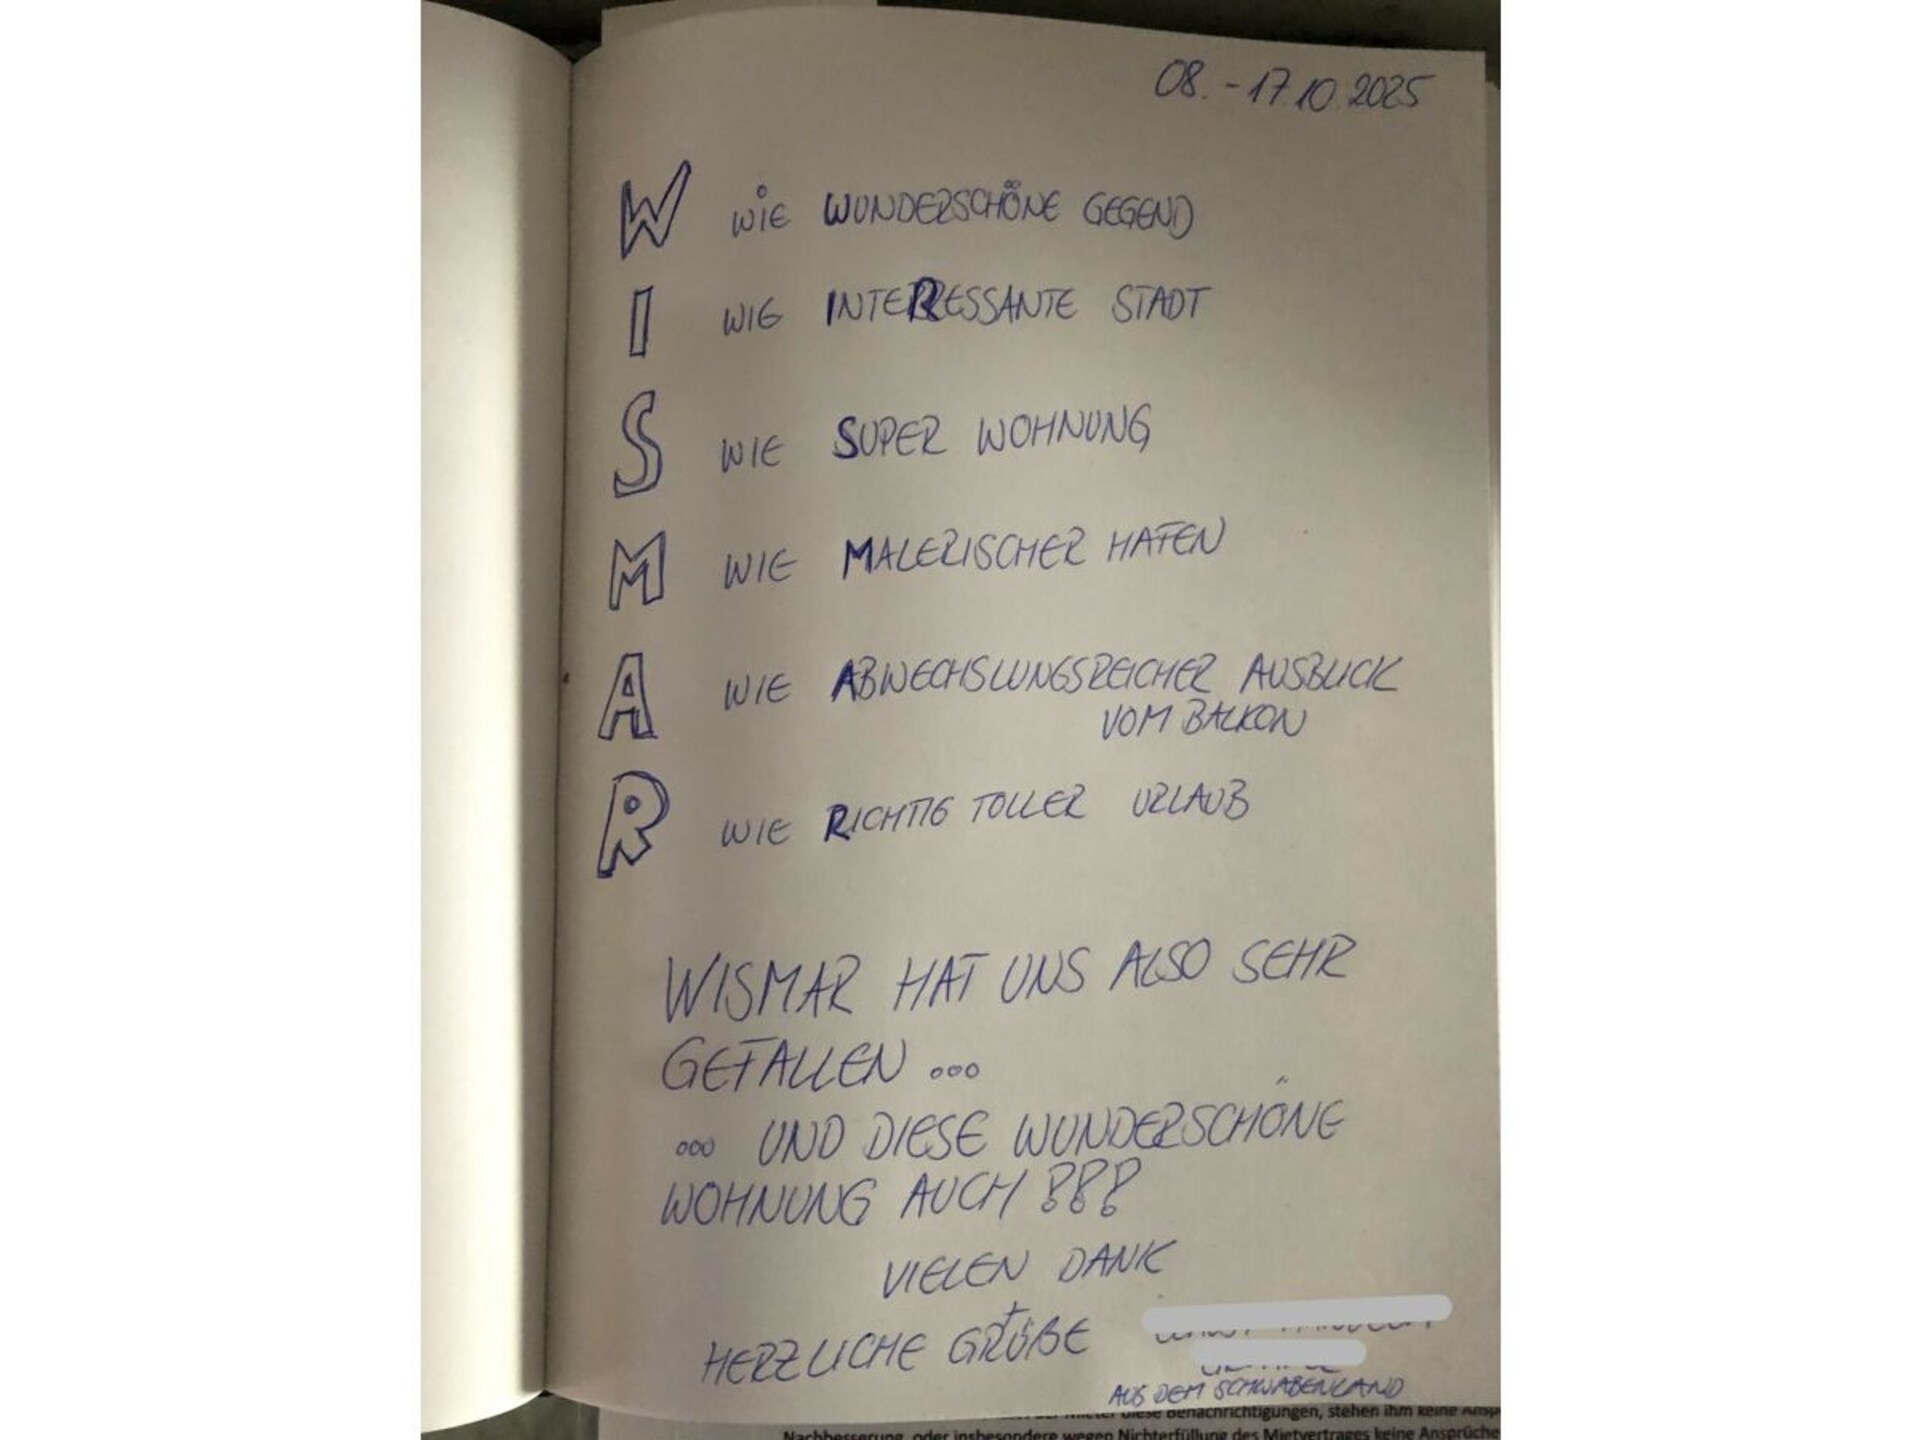 08. - 17.10.2025
W WIE WUNDERSCHÖNE GEGEND
I WIE INTERRESSANTE STADT
S WIE SUPER WOHNUNG
M WIE MALERISCHER HAFEN
A WIE ABWECHSLUNGSREICHER AUSBLICK
VOM BALKON
R WIE RICHTIG TOLLER URLAUB
WISMAR HAT UNS ALSO SEHR
GEFALLEN ...
... UND DIESE WUNDERSCHÖNE
WOHNUNG AUCH !!!
VIELEN DANK
+
HERZLICHE GRÜßE
AUS DEM SCHWABENLAND
diese Benachrichtigungen, stehen ihm keine
Nachbesserung, oder insbesondere wegen Nichterfüllung des Mietvertrages keine Ansprüche